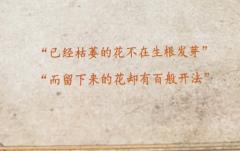 “已经枯萎的花不在生根发芽”
“而留下来的花却有百般开法”